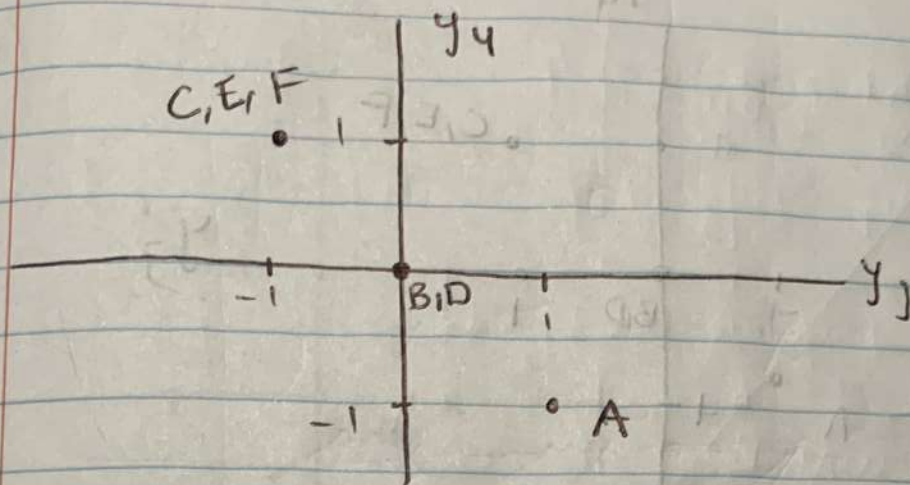 y4
C, E, F
1
-1
B, D
1
y
-1
A